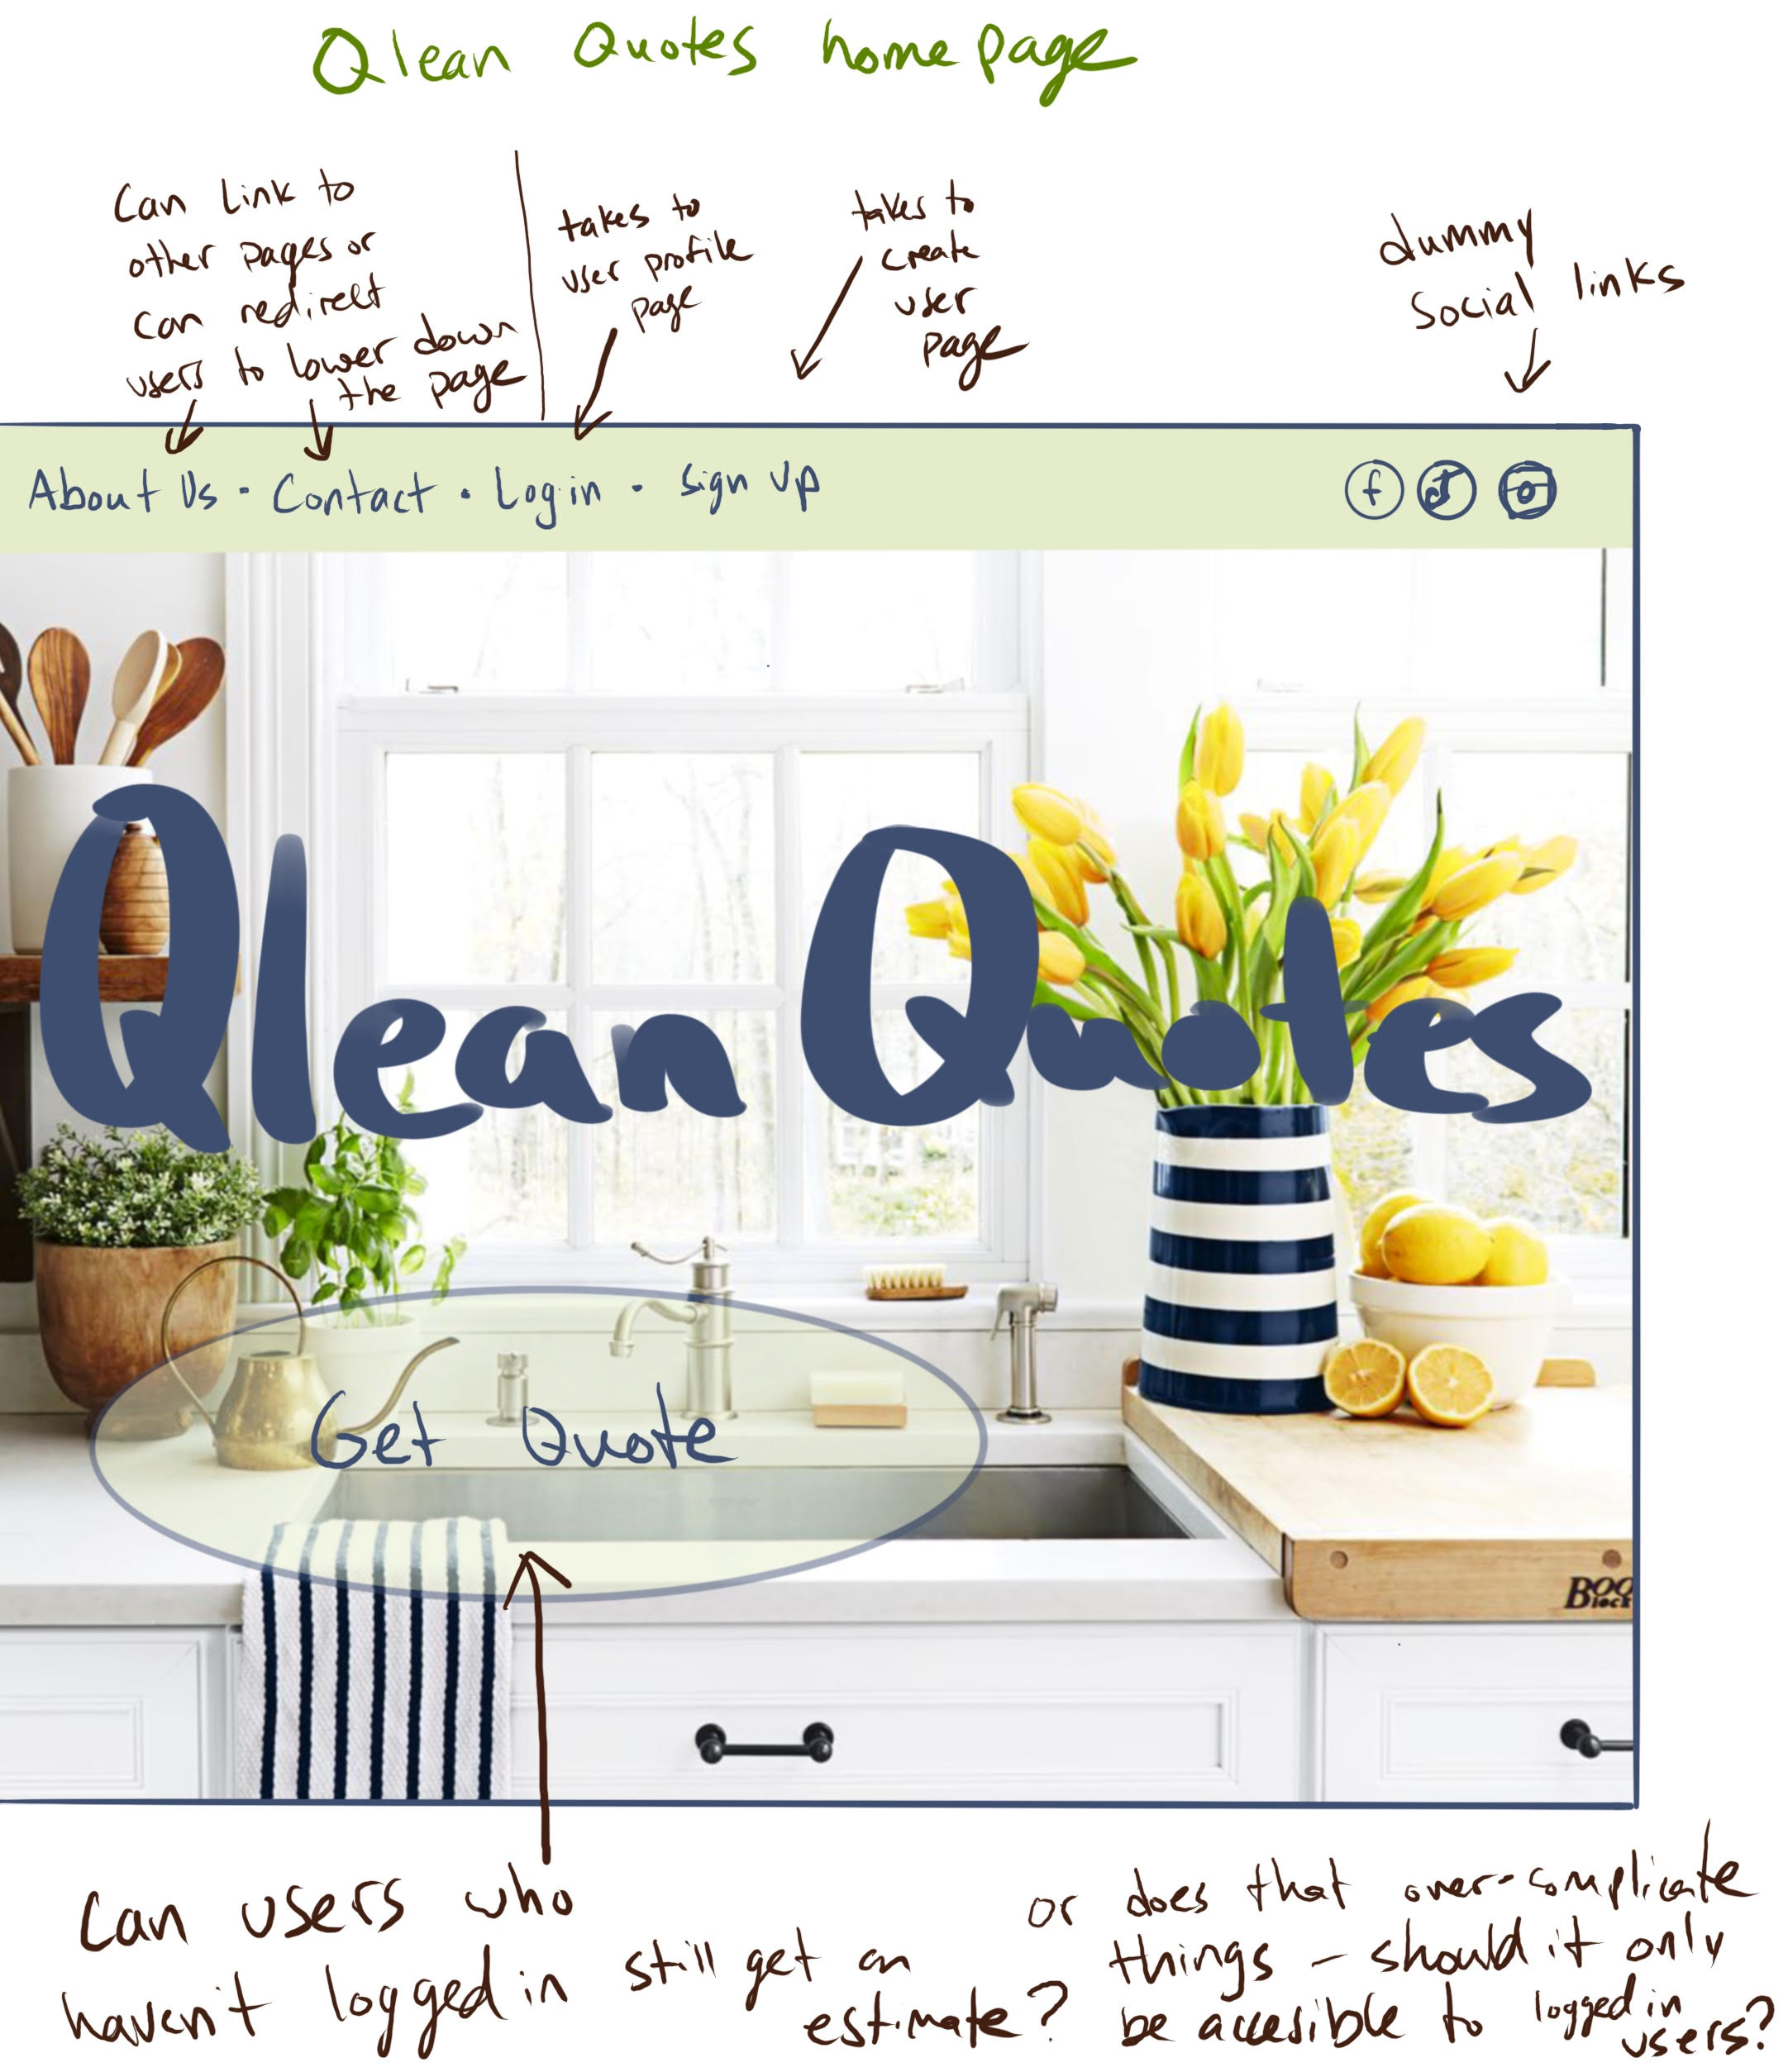 Qlean Quotes homepage
Can link to
other pages or
can redirect
users to lower down
the page
takes to
user profile
page
takes to
create
user
page
dummy
social links
About Us · Contact · Login · Sign Up
f
Qlean Quotes
Get Quote
BOOS
Block
Can users who
haven't logged in still get an
estimate?
or does that over-complicate
things – should it only
be accesible to logged in
users?